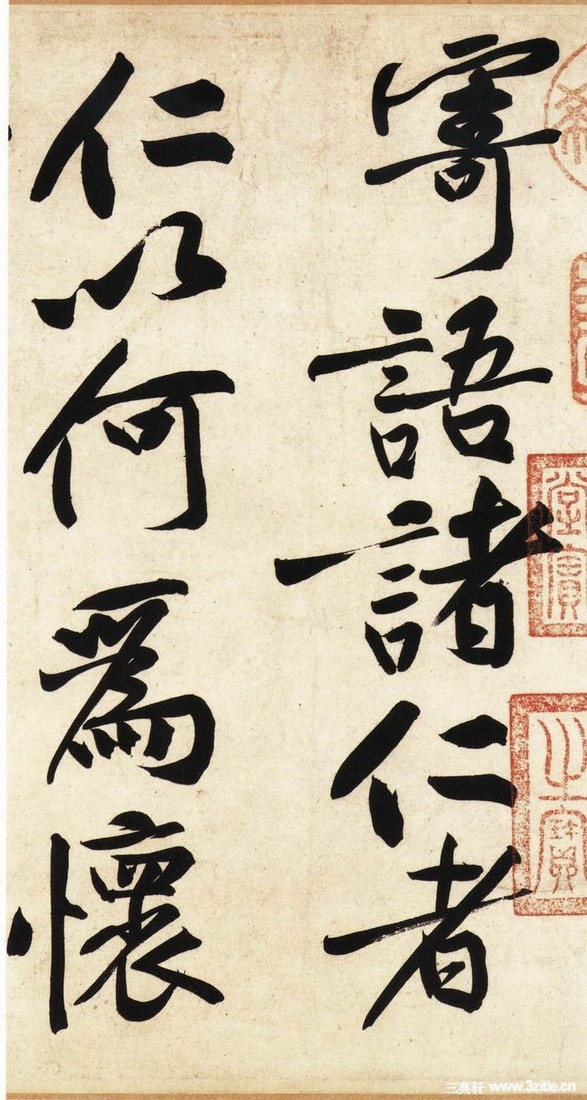 寄語諸仁者
仁以何為懷
三典轩 www.3zitie.cn